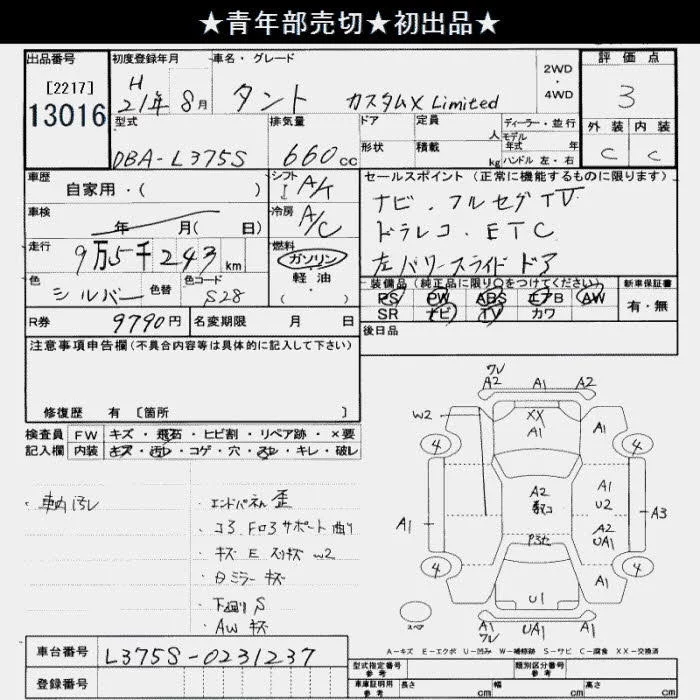 ★青年部売切★初出品★
出品番号
[2217]
13016
初度登録年月
H 21年 8月
車名・グレード
タント カスタムX Limited
2WD
・
4WD
評価点
3
外装 内装
C C
型式
DBA-L375S
排気量
660cc
ドア
形状
定員
人
積載
kg
ディーラー・並行
モデル
年式 年
ハンドル 左・右
車歴
自家用・( )
シフト
A/T
車検
年 月( 日)
冷房
A/C
走行
9万5千243km
燃料
ガソリン
軽油
( )
色
シルバー
色替
色コード
S28
セールスポイント(正常に機能するものに限ります)
ナビ・フルセグTV
ドラレコ・ETC
左パワースライドドア
装備品(純正品に限り○をつけてください)
PS PW ABS エアB AW
SR ナビ TV カワ
新車保証書
有・無
R券 9790円
名変期限 月 日
後日品
注意事項申告欄(不具合内容等は具体的に記入して下さい)
修復歴 有 〔箇所 〕
検査員
記入欄
FW キズ・飛石・ヒビ割・リペア跡・×要
内装 キズ・汚レ・コゲ・穴・スレ・キレ・破レ
・車内汚レ
・エンドパネル歪
・コアサポート曲り
・キズ E W2
・ミラーキズ
・下廻りS
・AWキズ
ワレ
A2 A1 A2
W2
XX
A1
A1
4 4
A2
A1
U2
A1
A3
A2
UA1
4 4
A1
U1
スペア
A1 UA1 A1
ワレ
A-キズ E-エクボ U-凹み W-補修跡 S-サビ C-腐食 XX-交換済
車台番号
L375S-0231237
登録番号
型式指定番号
参考
類別区分番号
参考
車庫証明用
参考
長さ cm 幅 cm 高さ cm